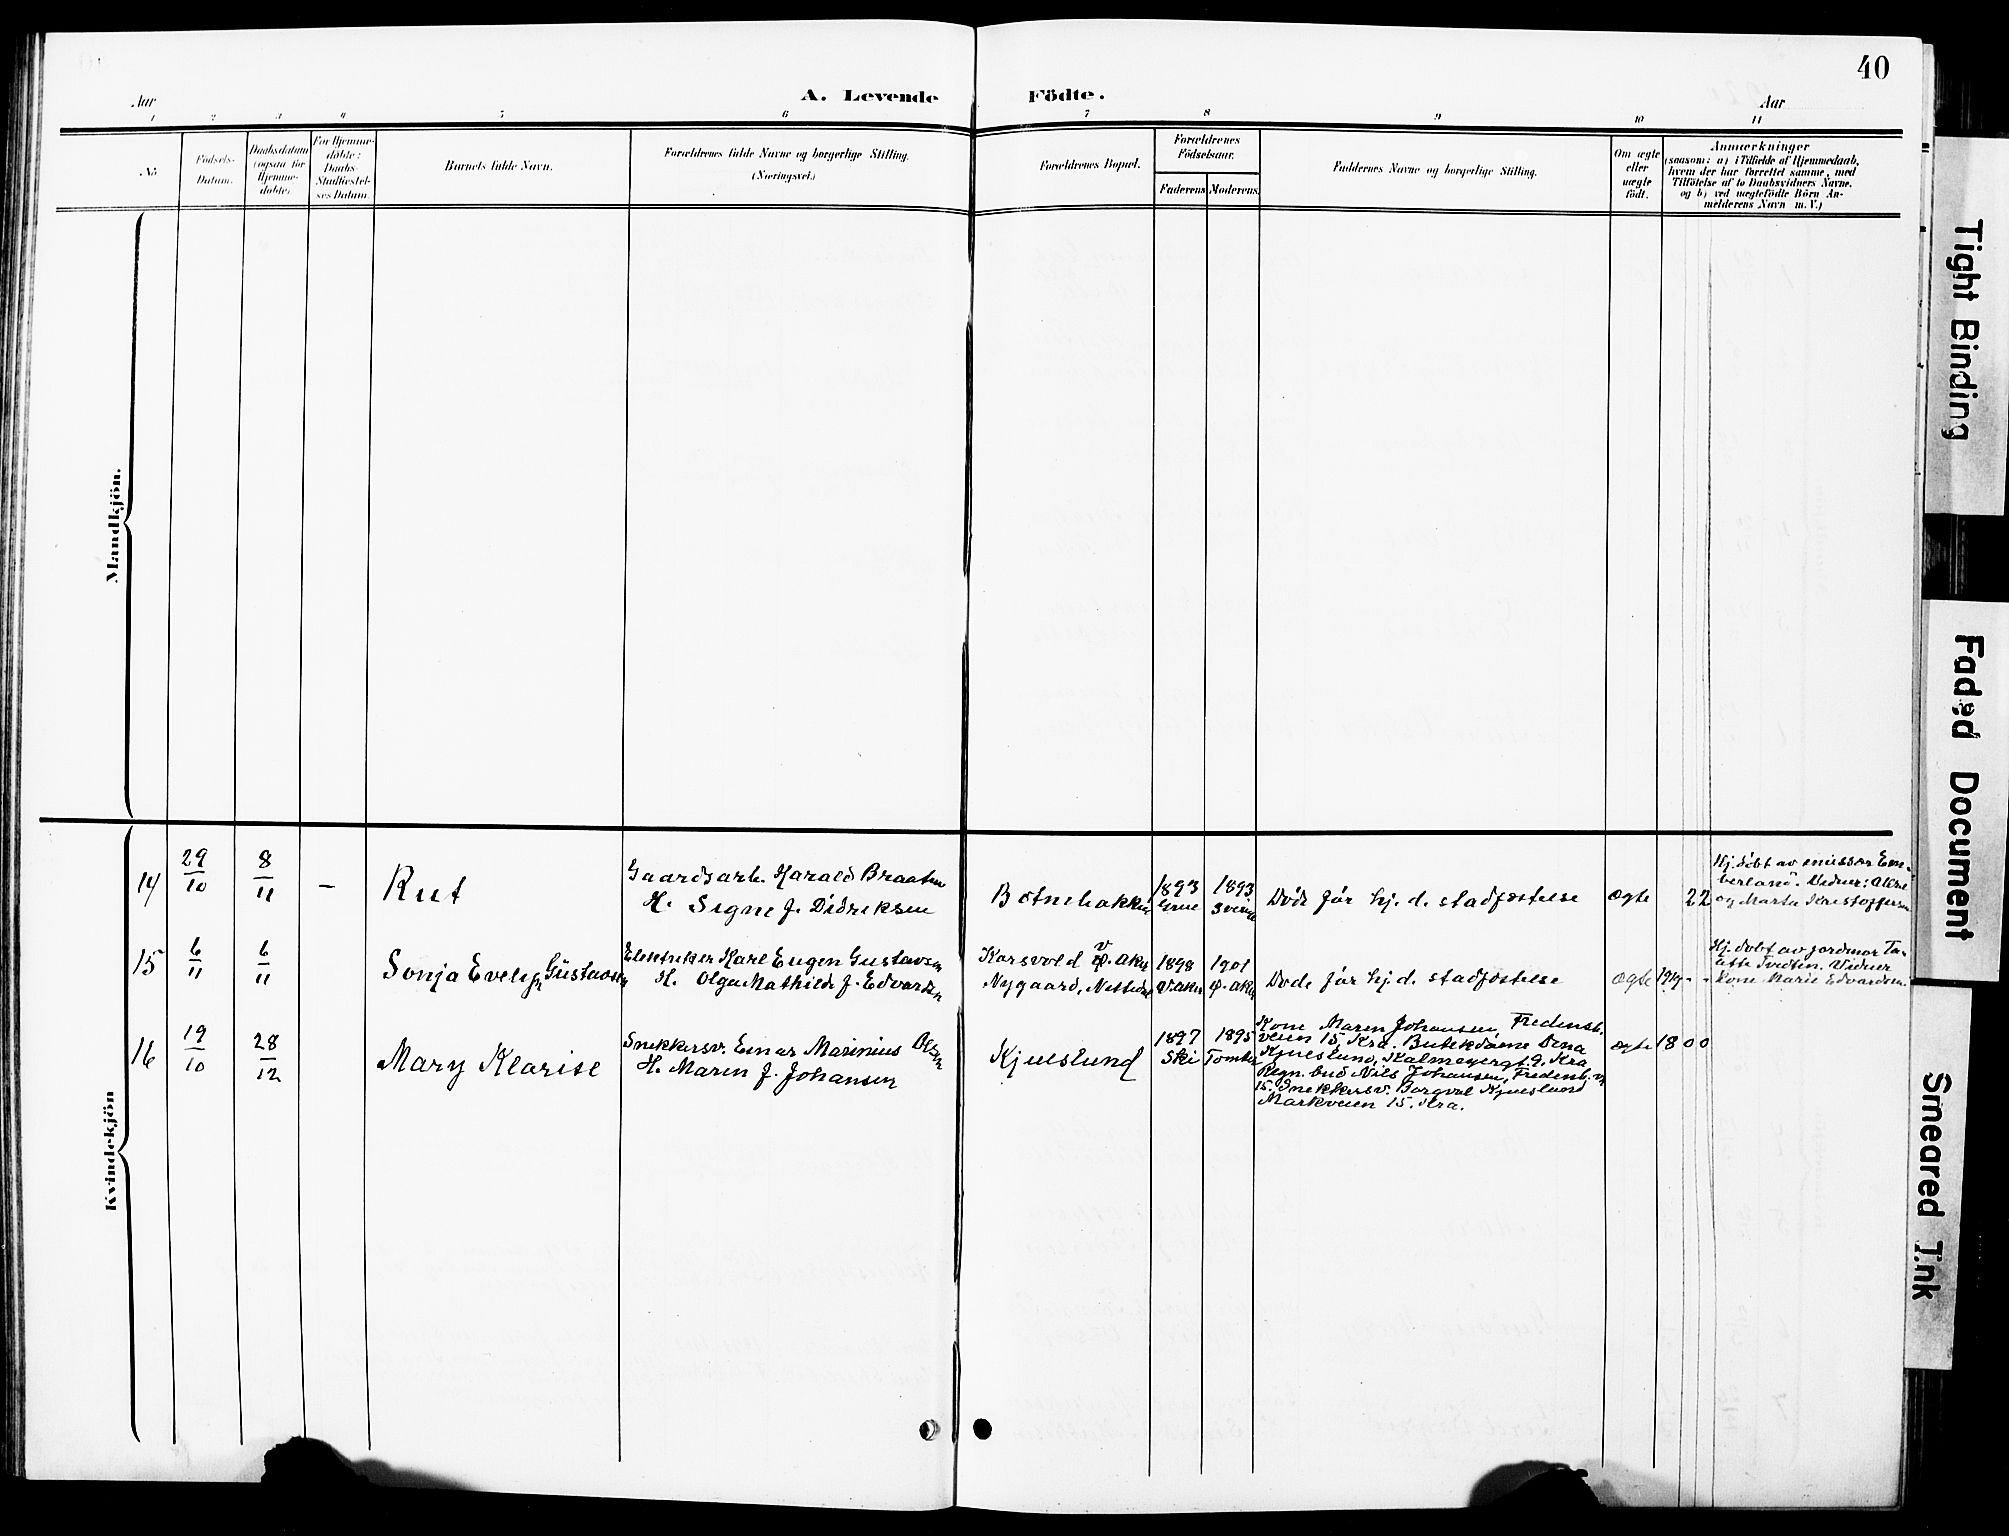 40
Aar
A. Levende Födte.
Aar
1 2 3 4 5 6 7 8 9 10 11
No
Födsels-
Datum.
Daabsdatum
(ogsaa for
Hjemme-
döbte).
For Hjemme-
döbte:
Daabs-
Stadfæstel-
ses Datum
Barnets fulde Navn.
Forældrenes fulde Navne og borgerlige Stilling.
(Næringsvei.)
Forældrenes Bopæl.
Forældrenes
Födselsaar.
Faderens
Moderens
Faddernes Navne og borgerlige Stilling.
Om ægte
eller
uægte
födt.
Anmærkninger
(saasom: a) i Tilfælde af Hjemmedaab,
hvem der har forrettet samme, med
Tilföielse af to Daabsvidners Navne.
og b) ved uægtefödte Börn An-
melderens Navn m. V.)
Mandkjön.
Kvindekjön
14
29/10
8/11
-
Rut
Gaardsarb. Harald Braaten
H. Signe f. Didriksen
Botnebakken
1893
Grue
1893
Døde før hj. d. stadfæstelse
ægte
22
Hj. døbt av
og Marta Kristoffersen
15
6/11
6/11
Sonja Evelyn Gustavsen
Elektriker Karl Eugen Gustavsen
H. Olga Mathilde f. Edvardsen
Karsvold V. Aker
Nygaard, Nittedal
1898
V. Aker
1901
Ø. Aker
Døde før hj. d. stadfæstelse
ægte
1919 - -
Hj. døbt av jordmor
Vidner
kone Marie Edvardsen
16
19/10
28/12
Mary Klarise
Snekkersv. Einar Marinius Olsen
H. Maren f. Johansen
Kjueslund
1897
Ski
1895
Tomter
Kone Maren Johansen, Fredensb.
veien 15, Kra. Butekdame Dena
Kjueslund, Kalmeyergt. 9, Kra
Regn. bud Nils Johansen, Fredensb. v.
15. Snekkersv. Borgval Kjueslund
Markveien 15. Kra.
ægte
18 0 0
Tight Binding
Faded Document
Smeared Ink